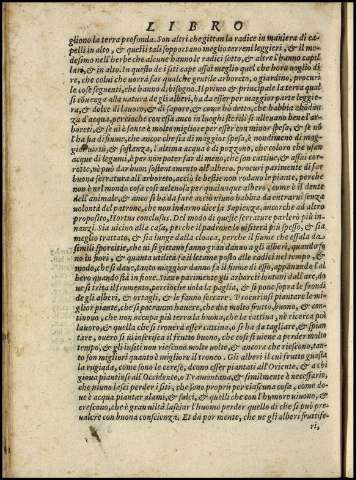 LIBRO
gliono la terra profonda. Son altri che gittan la radice in maniera di ca-
pelli in alto, & questi tali sopportano meglio terreni leggieri, & il me-
desimo nell'herbe che alcune hanno le radici sotto, & altre l'hanno capil-
lari, & in alto. In questo de i siti cape assai meglio quel che hora voglio di
re, che colui che vorrà far qualche gentile arboreto, o giardino, procuri
le cose seguenti, che hanno di bisogno. Il primo e principale la terra qual
si conuenga alla natura de gli alberi, ha da esser per maggior parte leggie
ra, & dolce di lauoro, & di sapore, & come hò detto, che habbia abbõdan
za d'acqua, percioche con essa anco in luoghi sterili si alleuano bene l'ar-
boreti, & se ui è fonte è molto migliore per esser con minor spesa, & se nõ
l'ha sia di fiume, che ancor che sia di maggior spesa, è nondimeno di mag-
gior uirtù, & sostanza, l'ultima acqua è di pozzo, che coloro che usan
acque di legumi, è per nõ poter far di meno, che son cattiue, & assai cor-
rotte, nè può dar buon sostentamento all'albero, procuri parimente di far
buona serratura all'arboreto, acciò le bestie non rodano le piante, perche
non è nel mondo cosa così uelenosa per qualunque albero, come è il dente
dell'animale, & anco si ha da fare acciò niuno habbia da entrarui senza
volontà del patrone, che non indarno dice la Sapienza, ancorche ad altro
proposito, Hortus conclusus. Del modo di queste serrature parlerò più in-
nanzi. Sia uicino alla casa, perche il padrone lo uisiterà più spesso, & sia
meglio trattato, & sia lungi dalla porche, perche il fiume che essala da
simili sporcitie, che ui si gettano fanno gran danno a gli alberi, quando fã
no li fiori, & quanta utilità fa il letame posto alle radici nel tempo, &
modo, che si dour, tanto maggior danno fa il fiume di esso, appannando l'al
bero quando stà in fiore. Stiano parimente gli arboreti lontani dall'are, do
ue si trita il frumento, percioche vola la paglia, & si pone sopra le frondi
de gli alberi, & ortagli, & le fanno seccare. Procurinsi piantare le mi-
glior piante, che si potranno hauere, che dia molto frutto, buono, & con-
tinuo, che non occupa più terra la buona, che la cattiua, nè ricerca più
lauoro, & quella che si trouerà esser cattina, o si ha da tagliare, & spian
tare, ouero si ui inserisca il frutto buono, che così si uiene a perder molto
tempo, & gli insetti non riescono molte uolte, & ancora che riescono, tan-
to son migliori quanto è migliore il tronco. Gli alberi il cui frutto guasta
la rugiada, come sono le cerese, deono esser piantati all'Oriente, & a chi
gioua piantinse all'Occidente, o Tramontana, & similmente è necessario,
che niuno lasci perder i siti, che sono proprij per ciascuna cosa, come do-
ue è acqua piantar alami, & salci, & quelli che con l'humore uiuono, &
crescono, che è gran uiltà lasciar l'huomo perder quello di che si può pre-
ualere con buona conscienza. Et dà por mente, che ne gli alberi fruttife-
ri,